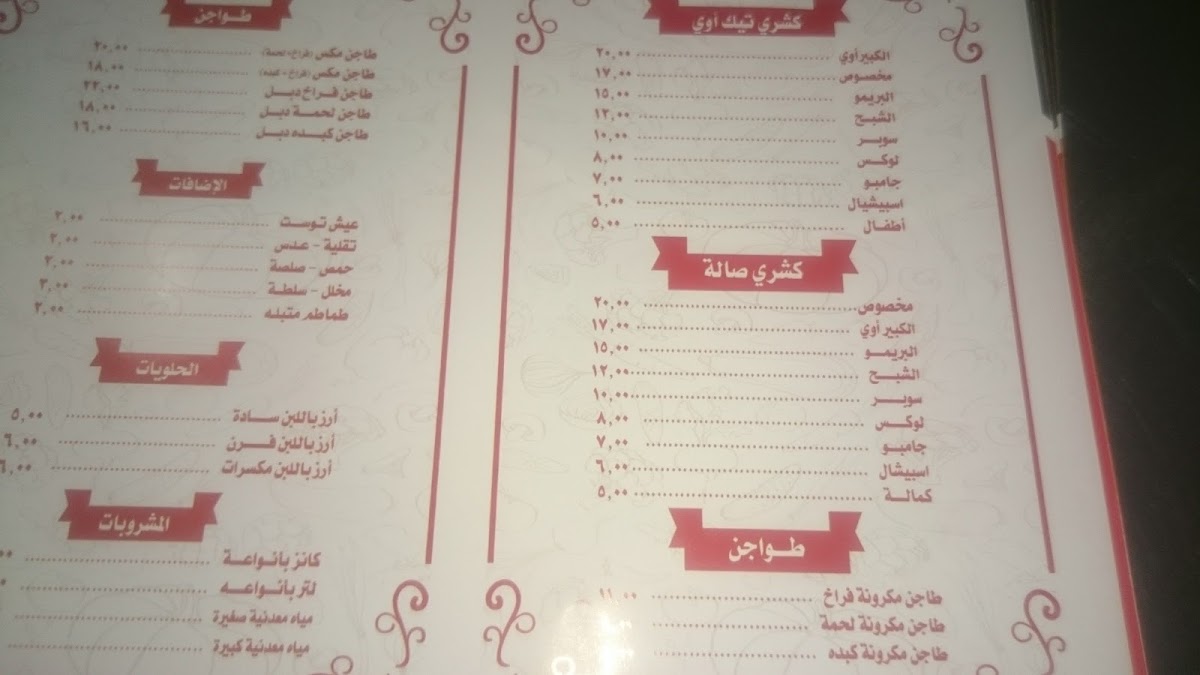 كشري تيك أوي
الكبير أوي ٢٠,٠٠
مخصوص ١٧,٠٠
البريمو ١٥,٠٠
الشبح ١٢,٠٠
سوبر ١٠,٠٠
لوكس ٨,٠٠
جامبو ٧,٠٠
اسبيشيال ٦,٠٠
أطفال ٥,٠٠
كشري صالة
مخصوص ٢٠,٠٠
الكبير أوي ١٧,٠٠
البريمو ١٥,٠٠
الشبح ١٢,٠٠
سوبر ١٠,٠٠
لوكس ٨,٠٠
جامبو ٧,٠٠
اسبيشال ٦,٠٠
كمالة ٥,٠٠
طواجن
طاجن مكرونة فراخ ١١,٠٠
طاجن مكرونة لحمة
طاجن مكرونة كبده
طواجن
طاجن مكس (فراخ - لحمة) ٢٠,٠٠
طاجن مكس (فراخ - كبده) ١٨,٠٠
طاجن فراخ دبل ٢٢,٠٠
طاجن لحمة دبل ١٨,٠٠
طاجن كبده دبل ١٦,٠٠
الإضافات
عيش توست ٢,٠٠
تقلية - عدس ٢,٠٠
حمص - صلصة ٢,٠٠
مخلل - سلطة ٣,٠٠
طماطم متبله ٢,٠٠
الحلويات
أرز باللبن سادة ٥,٠٠
أرز باللبن فرن ٦,٠٠
أرز باللبن مكسرات ٦,٠٠
المشروبات
كانز بأنواعة
لتر بأنواعه
مياه معدنية صغيرة
مياه معدنية كبيرة